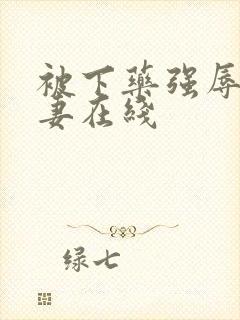 被下藥强辱
妻在綫
绿七